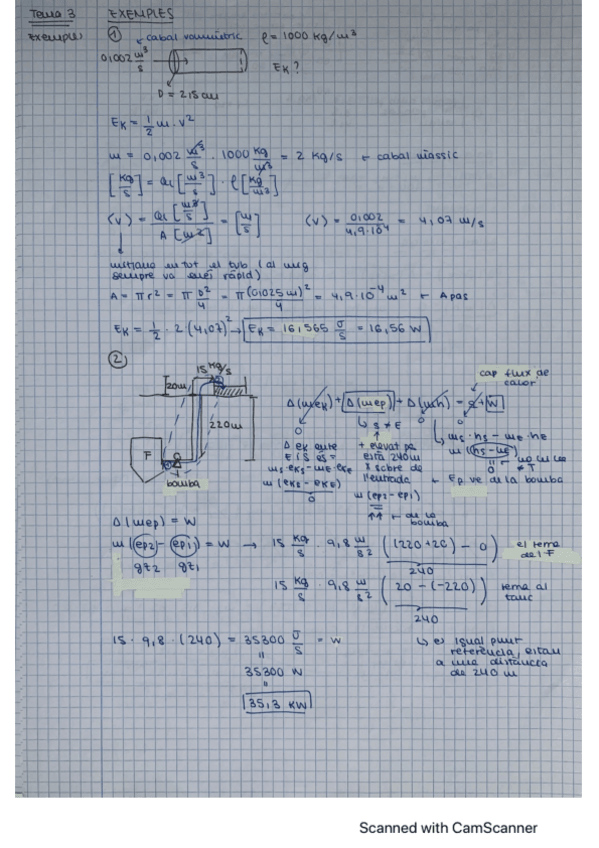 Tema 3 EXEMPLES
Exemples ① cabal volumètric ρ = 1000 kg/m³
0,002 m³/s
EK?
D = 2,5 cm
EK = 1/2 m · v²
m = 0,002 m³/s · 1000 kg/m³ = 2 kg/s ← cabal màssic
[kg/s] = [m³/s] · ρ [kg/m³]
(v) = [m³/s] / A [m²] = [m/s] (v) = 0,002 / 4,9·10⁻⁴ = 4,07 m/s
mitjana en tot el tub (al mig
sempre va més ràpid)
A = πr² = π D²/4 = π (0,025 m)²/4 = 4,9·10⁻⁴ m² ← A pas
EK = 1/2 · 2 (4,07)² → EK = 16,565 J/s = 16,56 W
②
15 kg/s
20m
220m
F
bomba
cap flux de
calor
Δ(mek) + Δ(mep) + Δ(mh) = q + W
0 0
↳ S ≠ E
ms · hs - me · hE
m (hs - he)
0
Δ ek entre
E i S és =
ms·eks - me·eke
m (eks - eke)
0
+ elevat pq
està 240m
x sobre de
l'entrada
m (ep2 - ep1)
← de la
bomba
← Ep ve de la bomba
Δ(mep) = W
m (ep2 - ep1) = W → 15 kg/s · 9,8 m/s² ((220+20) - 0) el terra
de l'F
gz2 gz1
240
15 kg/s · 9,8 m/s² (20 - (-220)) terra al
tanc
240
15 · 9,8 · (240) = 35300 J/s = W
35300 W
35,3 KW
↳ és igual punt
referència, estan
a una distància
de 240 m
Scanned with CamScanner